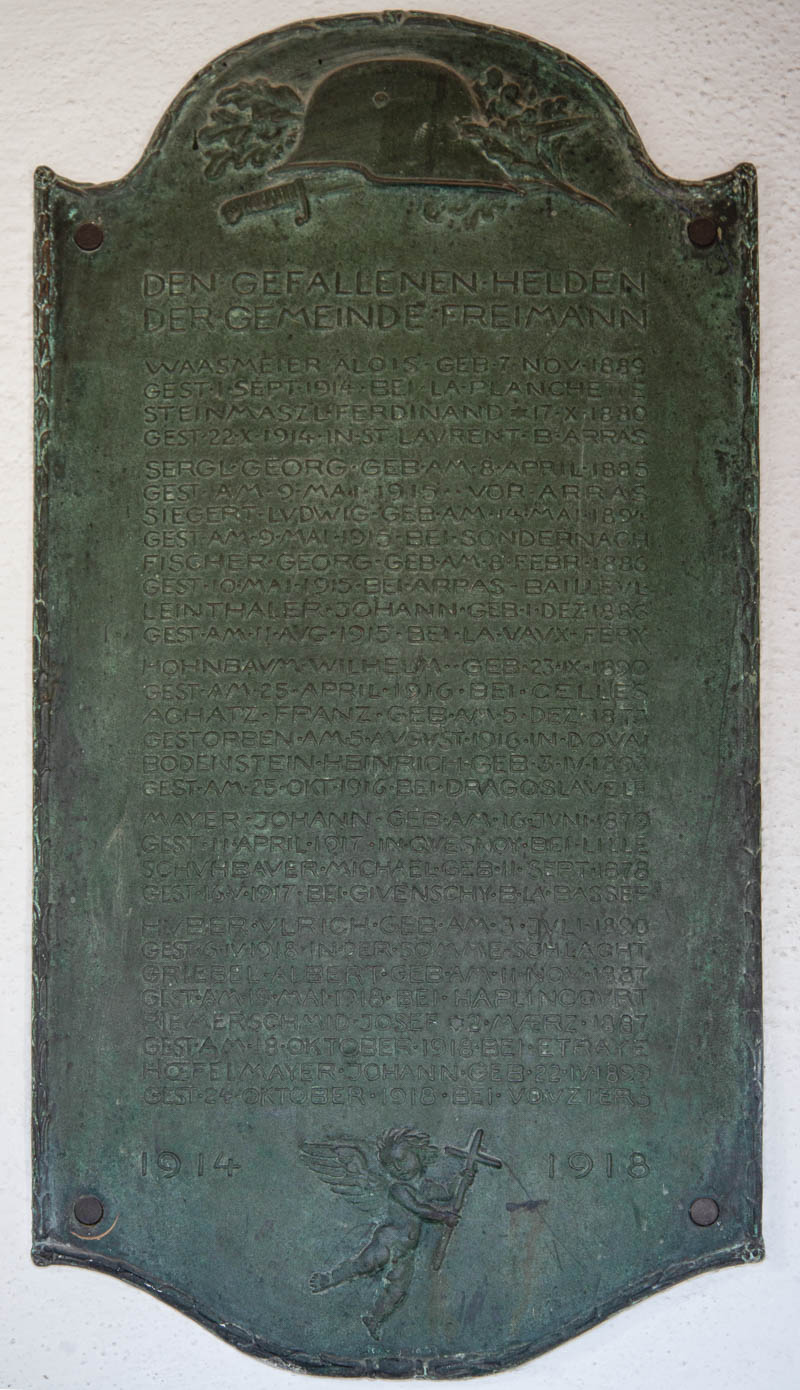 DEN·GEFALLENEN·HELDEN
DER·GEMEINDE·FREIMANN
WAASMEIER·ALOIS·GEB·7·NOV·1889
GEST·1·SEPT·1914·BEI·LA·PLANCHETTE
STEINMASZL·FERDINAND·*·17·X·1880
GEST·22·X·1914·IN·ST·LAVRENT·B·ARRAS
SERGL·GEORG·GEB·AM·8·APRIL·1885
GEST·AM·9·MAI·1915··VOR·ARRAS
SIEGERT·LVDWIG·GEB·AM·14·MAI·1894
GEST·AM·9·MAI·1915·BEI·SONDERNACH
FISCHER·GEORG·GEB·AM·8·FEBR·1886
GEST·10·MAI·1915·BEI·ARRAS-BAILLEVL
LEINTHALER·JOHANN·GEB·1·DEZ·1886
GEST·AM·11·AVG·1915·BEI·LA·VAVX·FERX
HOHNBAVM·WILHELM··GEB·23·IX·1890
GEST·AM·25·APRIL·1916·BEI·CELLES
ACHATZ·FRANZ·GEB·AM·5·DEZ·1877
GESTORBEN·AM·5·AVGVST·1916·IN·DOVAI
BODENSTEIN·HEINRICH·GEB·3·IV·1893
GEST·AM·25·OKT·1916·BEI·DRAGOSLAVELE
MAYER·JOHANN·GEB·AM·16·JVNI·1879
GEST·11·APRIL·1917·IN·QVESNOY·BEI·LILLE
SCHVHBAVER·MICHAEL·GEB·11·SEPT·1878
GEST·16·V·1917·BEI·GIVENSCHY·B·LA·BASSEE
HVBER·VLRICH·GEB·AM·3·JVLI·1890
GEST·5·IV·1918·IN·DER·SOMME-SCHLACHT
GRIEBEL·ALBERT·GEB·AM·11·NOV·1887
GEST·AM·15·MAI·1918·BEI·HAPLINCOVRT
RIEMERSCHMID·JOSEF·*3·MÆRZ·1887
GEST·AM·18·OKTOBER·1918·BEI·ETRAYE
HŒFELMAYER·JOHANN·GEB·22·IV·1899
GEST·24·OKTOBER·1918·BEI·VOVZIERS
1914 1918